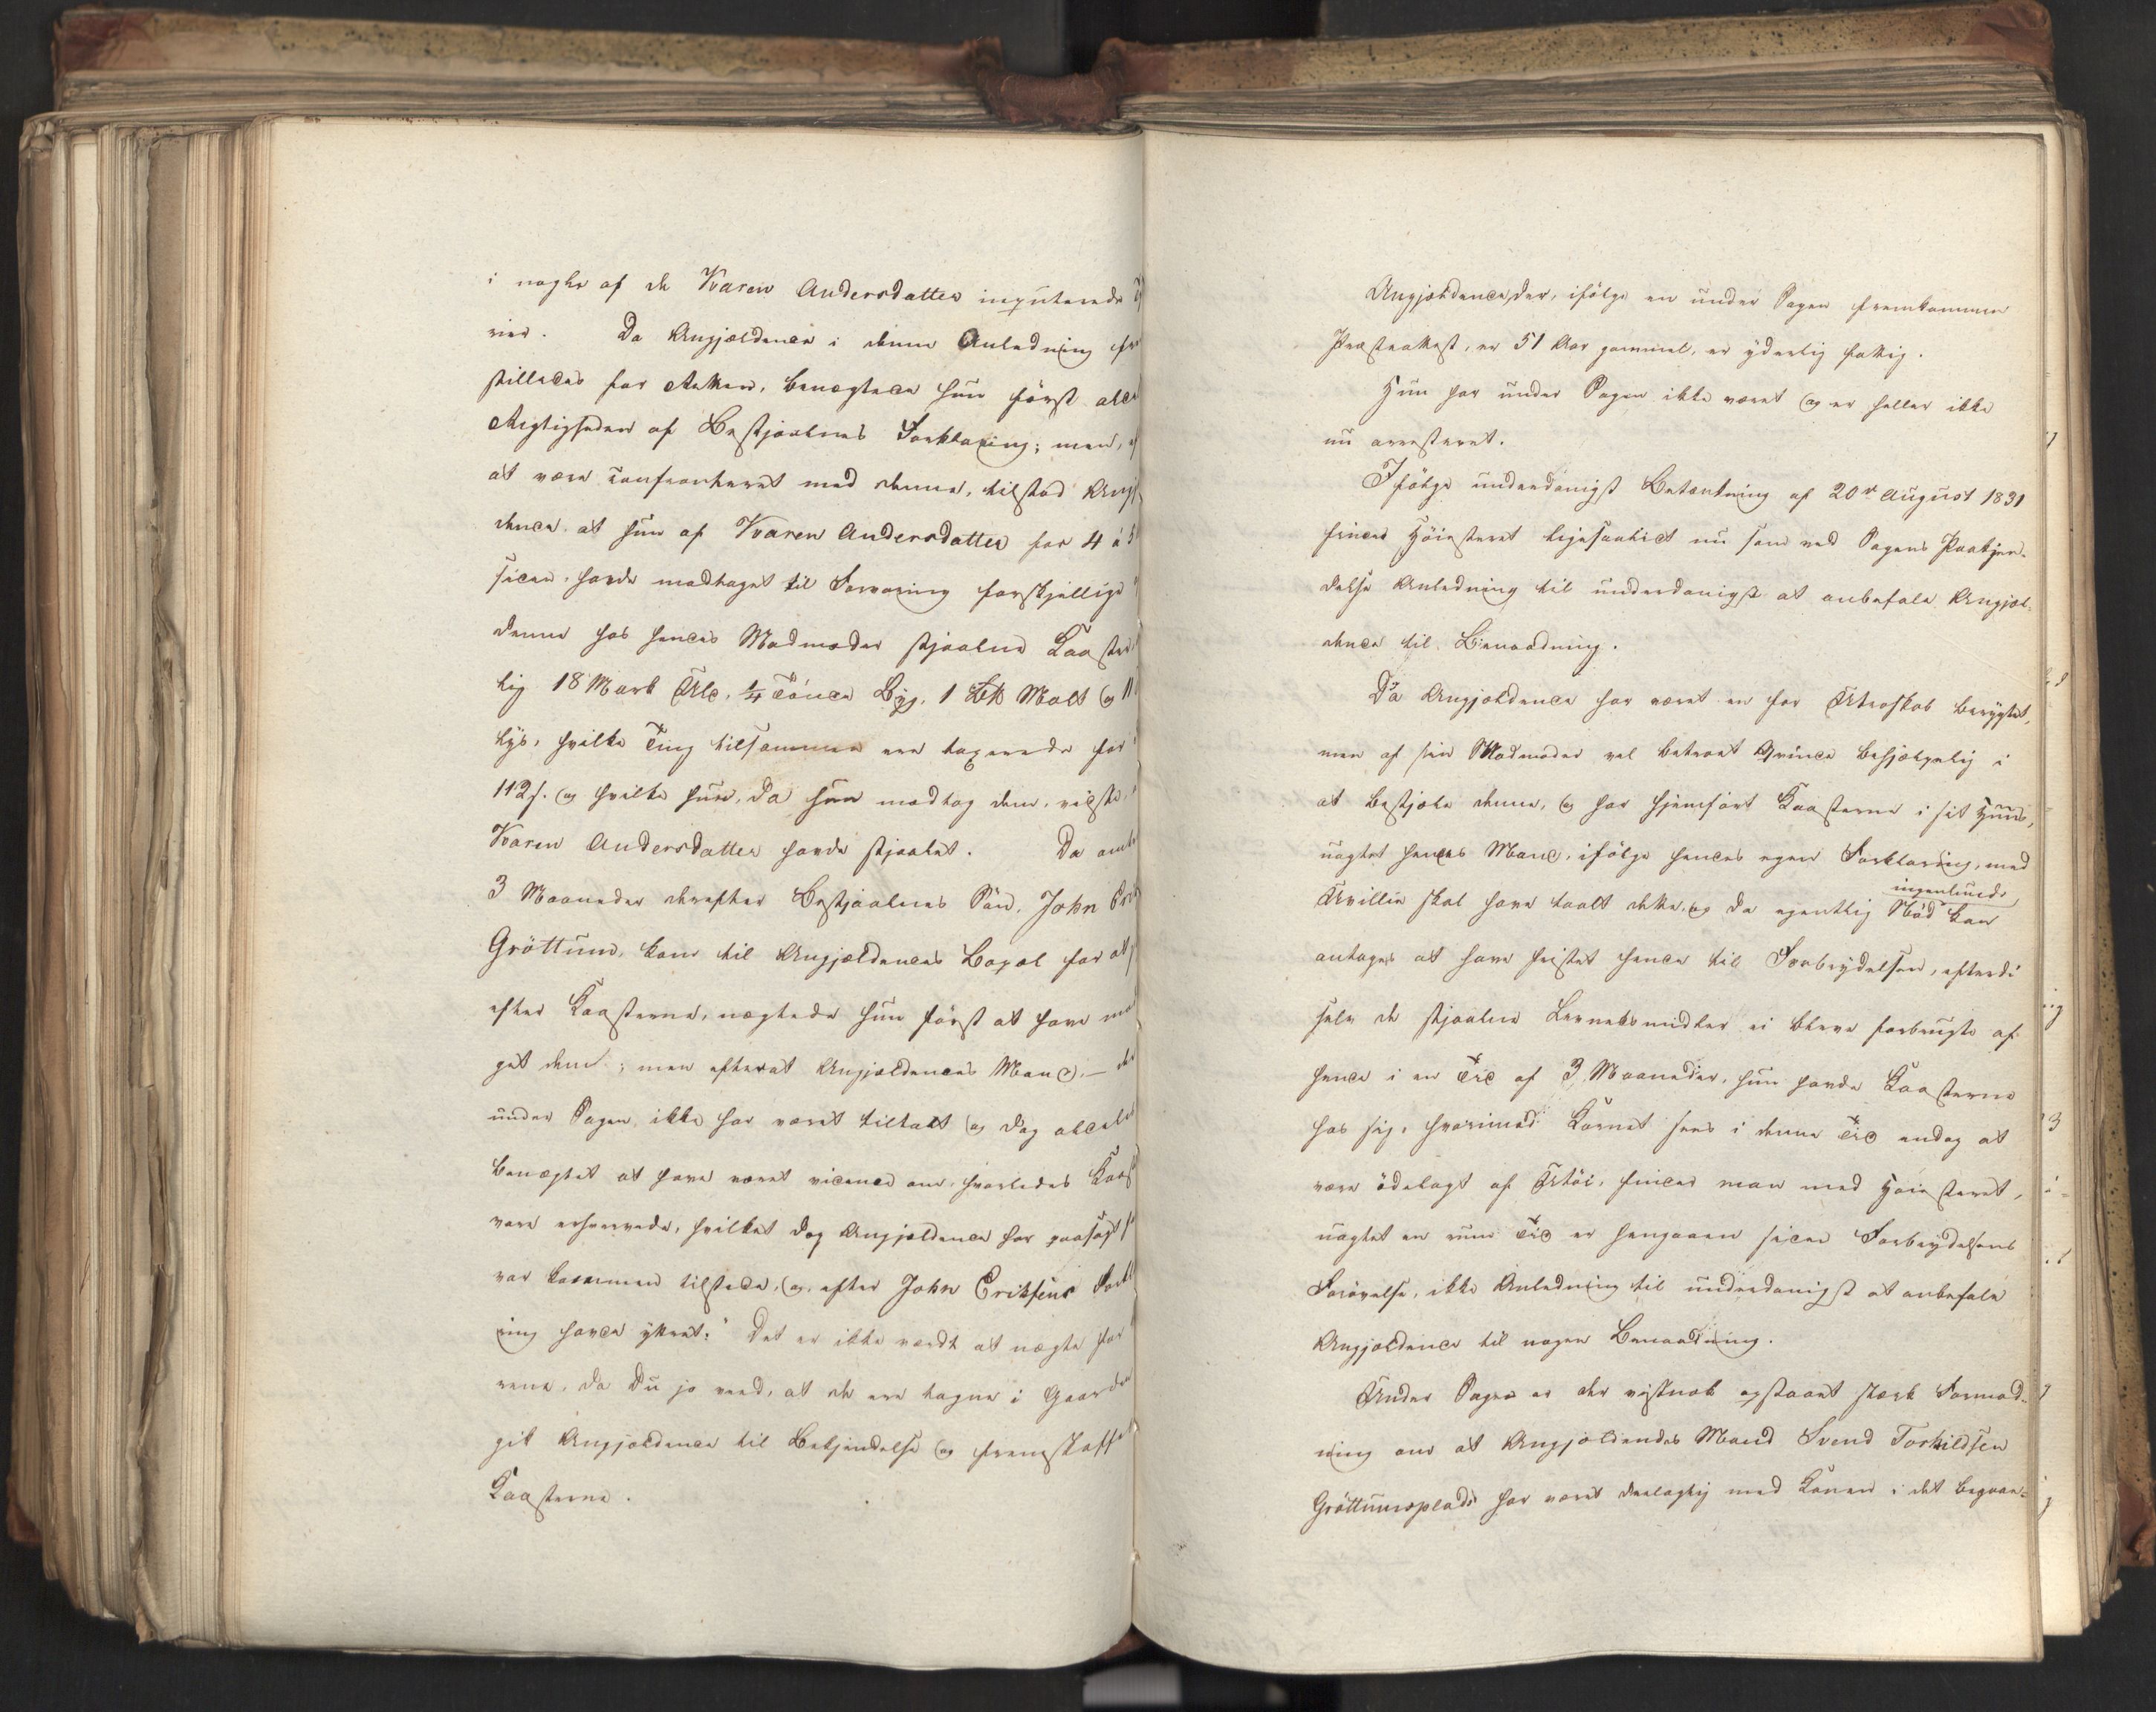 i nogle af de Karen Andersdatter imputerede Ty
rier. Da Angjældende i denne Anledning fre
stilledes for Retten, benægtede hun först alde
Rigtigheden af Bestjaalnes Forklaring; men, ef
at være confronteret med denne, tilstod Angj
dende at hun af Karen Andersdatter for 4 à 5
siden, havde modtaget til Forvaring forskjellige
denne hos hendes Madmoder stjaalne Koster
lig 18 Mark Uld, ¼ Tönde Byg, 1 Malt og 11
lys, hvilke Ting tilsammen ere taxerede for
112 s. og hvilke hun, da hun modtog dem, vidste,
Karen Andersdatter havde stjaalet. Da omtr
3 Maaneder derefter Bestjaalnes Sön, John Eri
Gröttum, kom til Angjældendes Bopæl for at
efter Kosterne, nægtede hun först at have mo
get dem; men efterat Angjældendes Mand, – der
under Sagen ikke har været tiltalt og dog aldeles
benægtet at have været vidende om, hvorledes Kost
vare erhvervede, hvilket dog Angjældende har paasagt
var kommen tilstede, og, efter John Eriksens Fork
ing havde yttret: "Det er ikke værdt at nægte for
rene, da Du jo veed, at de ere tagne i Gaarden
gik Angjældende til Bekjendelse og fremskaffe
Kosterne.
Angjældende, der, ifölge en under Sagen fremkommen
Præsteattest, er 51 Aar gammel, er yderlig fattig.
Hun har under Sagen ikke været og er heller ikke
nu arresteret.
Ifölge underdanigst Betænkning af 20de August 1831
finder Höiesteret ligesaalidt nu som ved Sagens Paakjen-
delse Anledning til underdanigst at anbefale Angjæl-
dende til Benaadning.
Da Angjældende har været en for Utroskab berygtet,
men af sin Madmoder vel betroet Qvinde behjælpelig i
at bestjæle denne, og har hjemfört Kosterne i sit Huus,
uagtet hendes Mand, ifölge hendes egen Forklaring, med
Uvillie skal have taalt dette, og da egentlig Nöd ingenlunde kan
antages at have fristet hende til Forbrydelsen, efterdi
selv de stjaalne Levnetsmidler ei bleve forbrugte af
hende i en Tid af 3 Maaneder, hun havde Kosterne
hos sig, hvorimod Kornet sees i denne Tid endog at
være ödelagt af Utöi, finder man med Höiesteret,
uagtet en rum Tid er hengaaen siden Forbrydelsens
Forövelse, ikke Anledning til underdanigst at anbefale
Angjældende til nogen Benaadning.
Under Sagen er der vistnok opstaaet stærk Formod-
ning om at Angjældendes Mand Svend Torkildsen
Gröttumsplads har været deelagtig med Konen i det begaae-